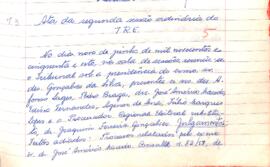 Ata da segunda sessão ordinária do
T.R.E.
No dia nove de junho de mil novecentos e
cinquenta e sete, na sala de sessões reuniu-se
o Tribunal sob a presidência do exmo. sr.
des. Gonçalves da Silva, presentes os srs. des. A.
fonso Lages, Pedro Braga, drs. José Américo Macedo,
Fernandes, de Sena,
Lopes e o Procurador Regional Eleitoral
to, dr. Joaquim Ferreira Gonçalves. Julgamentos.
Feitos adiados: Processos relatados pelo exmo.
sr. dr. José Américo Macedo. Consulta nº 82/57, de